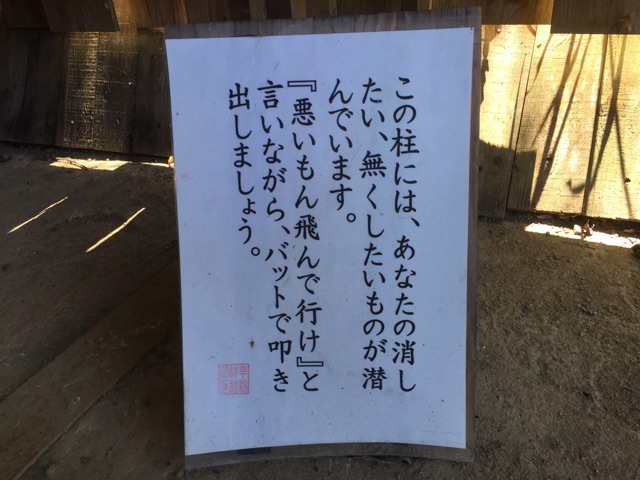 この柱には、あなたの消し
たい、無くしたいものが潜
んでいます。
『悪いもん飛んで行け』と
言いながら、バットで叩き
出しましょう。